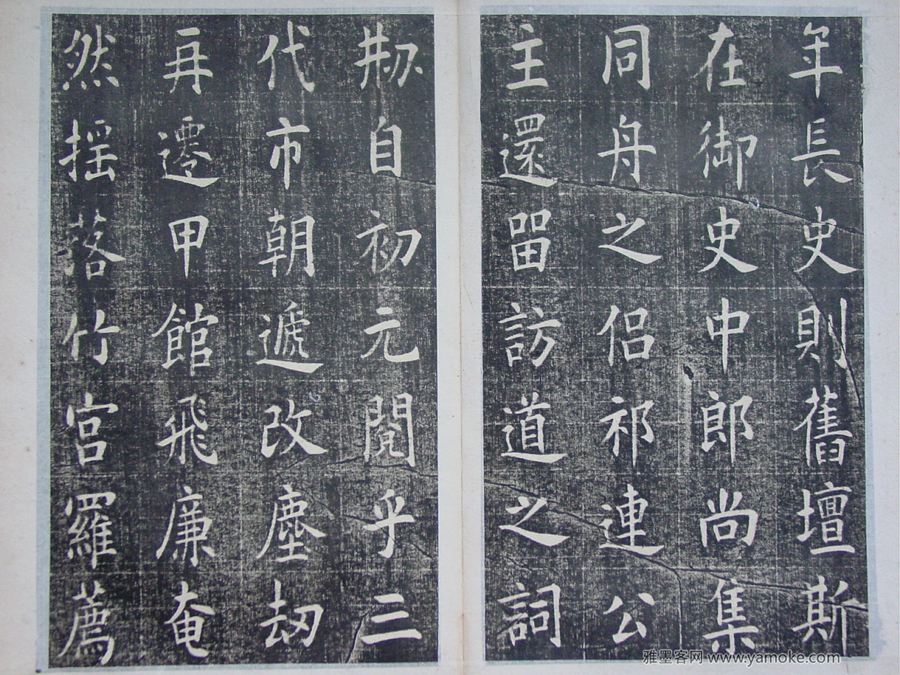 年長史則舊壇斯
在御史中郎尚集
同舟之侶祁連公
主還留訪道之詞
剏自初元閱乎三
代市朝遞改塵刼
再遷甲館飛廉奄
然揺落竹宮羅薦
雅墨客网 www.yamoke.com